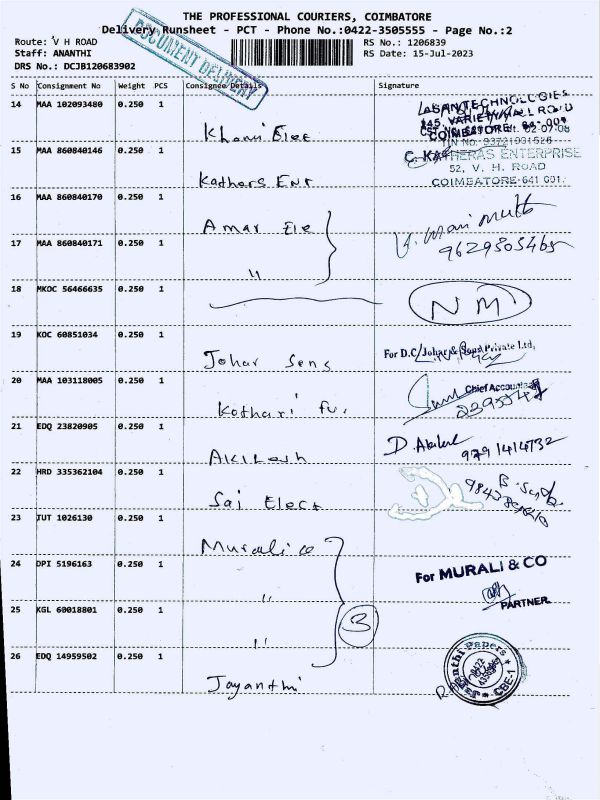 THE PROFESSIONAL COURIERS, COIMBATORE
Delivery Runsheet - PCT - Phone No.:0422-3505555 - Page No.:2
Route: V H ROAD RS No.: 1206839
Staff: ANANTHI RS Date: 15-Jul-2023
DRS No.: DCJB120683902
DOCUMENT DELIVERY
S No Consignment No Weight PCS Consignee/Details Signature
14 MAA 102093480 0.250 1
Khanni Elec
TECHNOLOGIES
145, VARIETY HALL ROAD
COIMBATORE
15 MAA 860840146 0.250 1
Kathers Ent
C. KATHERAS ENTERPRISE
52, V. H. ROAD
COIMBATORE-641 001.
16 MAA 860840170 0.250 1
Amar Ele
V. Mani Muth
9629505465
17 MAA 860840171 0.250 1
"
18 MKOC 56466635 0.250 1
NM
19 KOC 60851034 0.250 1
Johar Sons
For D.C. Johar & Sons Private Ltd,
20 MAA 103118005 0.250 1
Kothari Fu.
Chief Accountant
21 EDQ 23820905 0.250 1
Akilesh
D. Akilesh 9791414732
22 HRD 335362104 0.250 1
Sai Elect
23 TUT 1026130 0.250 1
Murali co
24 DPI 5196163 0.250 1
"
For MURALI & CO
PARTNER
25 KGL 60018801 0.250 1
"
3
26 EDQ 14959502 0.250 1
Jayanthi
Papers
CBE-1